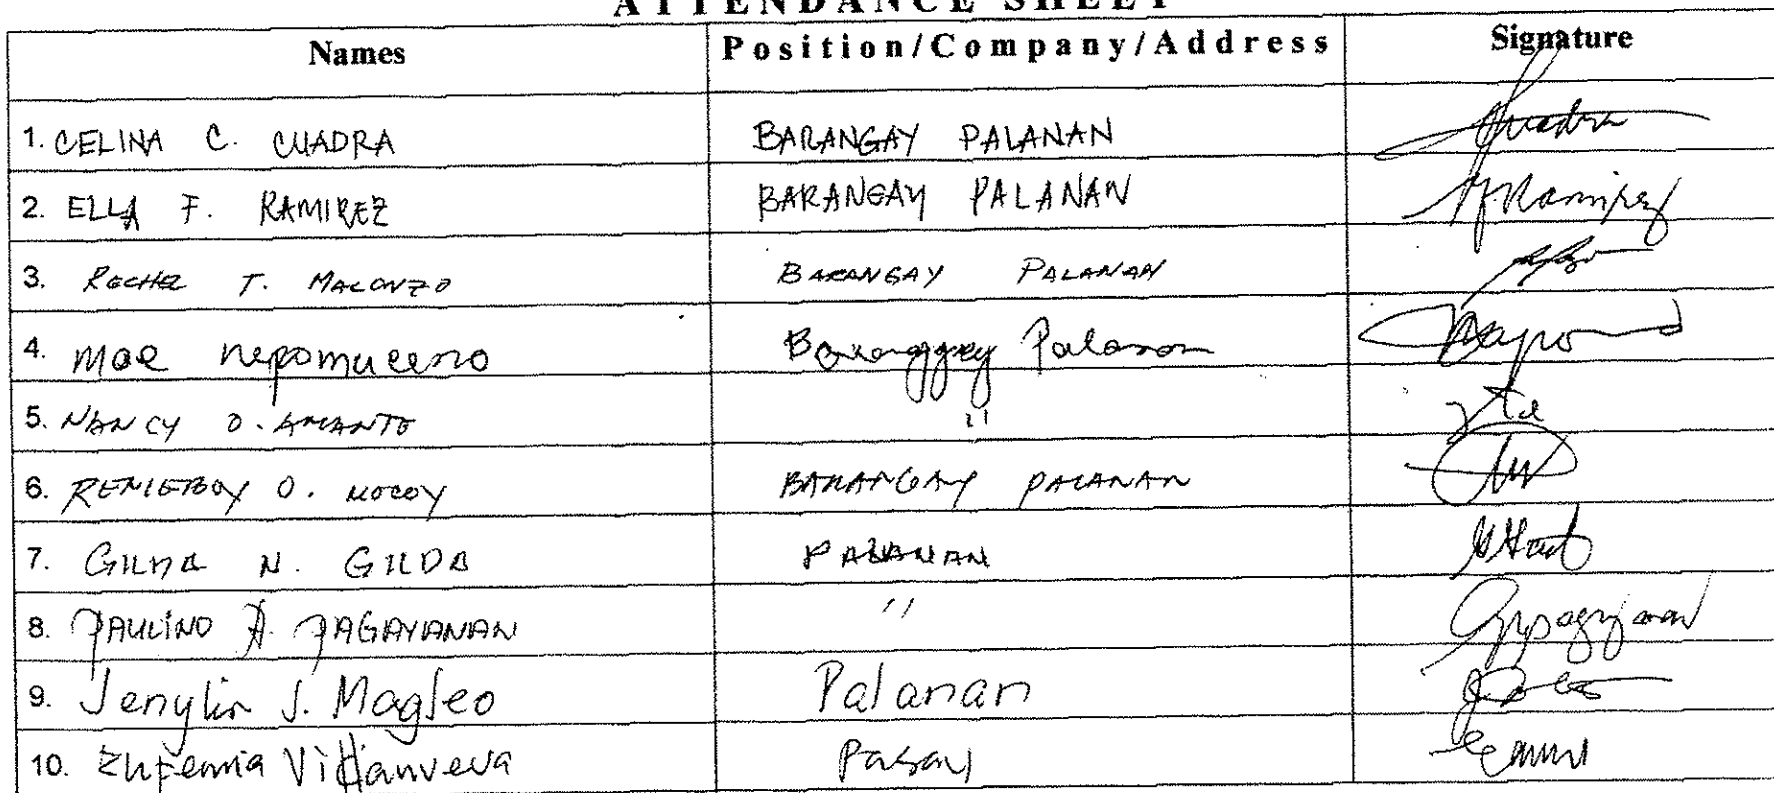 ATTENDANCE SHEET
Names Position/Company/Address Signature
1. CELINA C. CUADRA BARANGAY PALANAN
2. ELLA F. RAMIREZ BARANGAY PALANAN
3. T. MALONZO BARANGAY PALANAN
4. Mae nepomuceno Baranggay Palanan
5. NANCY O. AMANTE "
6. O. BARANGAY PALANAN
7. GILDA N. GILDA PALANAN
8. PAULINO A. PAGAYANAN "
9. Jenylin J. Magleo Palanan
10. Eufemia Villanueva Pasay